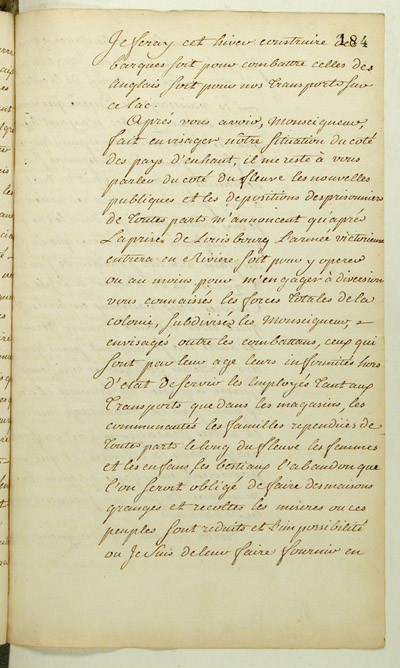 184
Je feray cet hiver construire des
barques soit pour combattre celles des
Anglais soit pour nos transports sur
ce lac.
Après vous avoir, Monseigneur,
fait envisager nôtre situation du coté
des pays d'enhaut, il me reste à vous
parler du coté du fleuve les nouvelles
publiques et les depositions des prisonniers
de toutes parts m'annoncent qu'après
La prise de Louisbourg L'armée victorieuse
entrera en Riviere soit pour y operer
ou au moins pour m'engager à diversion
vous connaissés les forces totales de la
colonie, subdivisés les Monseigneur,
envisagés outre les combattans, ceux qui
sont par leur age leurs infirmités hors
d'etat de servir les Employés tant aux
Transports que dans les magasins, les
communautés les familles rependües de
toutes parts le long du fleuve les femmes
et les enfans les bestiaux l'abandon que
l'on seroit obligé de faire des maisons
granges et recoltes les miseres ou ces
peuples sont reduits et l'impossibilité
ou Je suis de leur faire fournir en